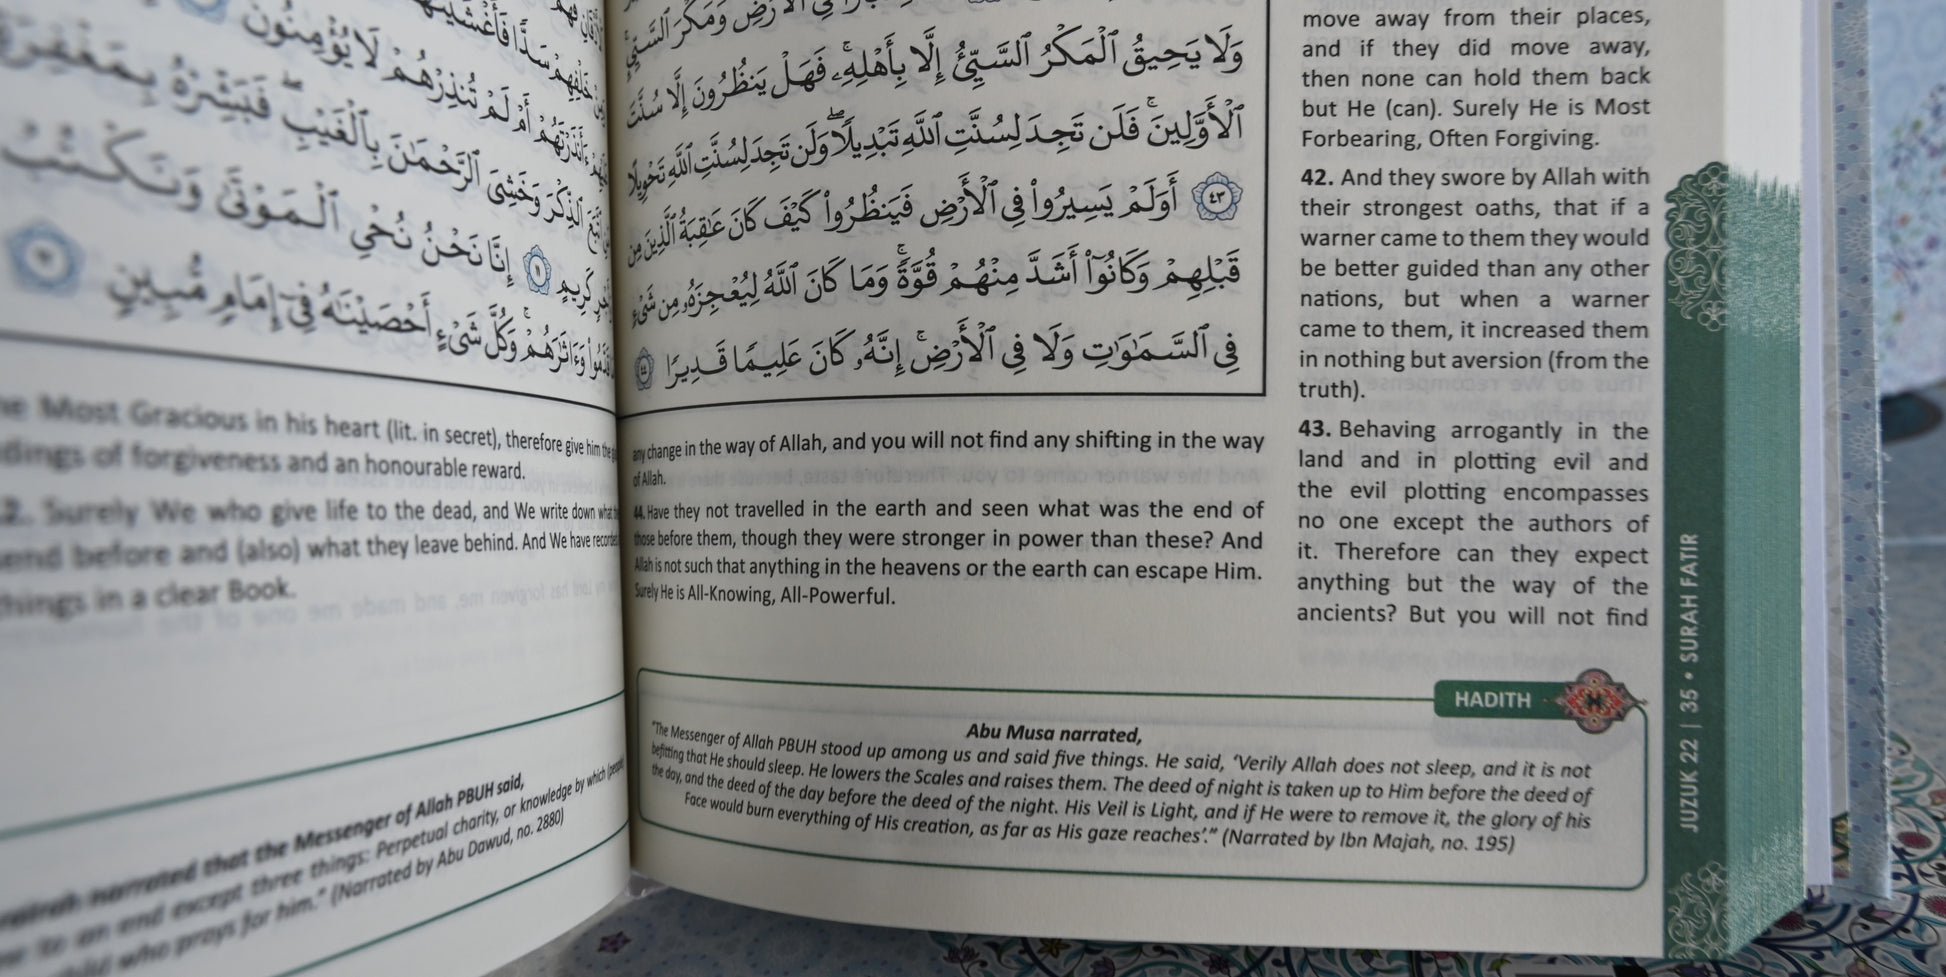 خَلْفِهِمْ سَدًّا فَأَغْشَيْنَٰهُمْ
ءَأَنذَرْتَهُمْ أَمْ لَمْ تُنذِرْهُمْ لَا يُؤْمِنُونَ
ٱتَّبَعَ ٱلذِّكْرَ وَخَشِىَ ٱلرَّحْمَٰنَ بِٱلْغَيْبِ ۖ فَبَشِّرْهُ بِمَغْفِرَةٍ
كَرِيمٍ ١١ إِنَّا نَحْنُ نُحْىِ ٱلْمَوْتَىٰ وَنَكْتُبُ
قَدَّمُوا۟ وَءَاثَٰرَهُمْ ۚ وَكُلَّ شَىْءٍ أَحْصَيْنَٰهُ فِىٓ إِمَامٍ مُّبِينٍ
Most Gracious in his heart (lit. in secret), therefore give him the
dings of forgiveness and an honourable reward.
2. Surely We who give life to the dead, and We write down what
send before and (also) what they leave behind. And We have recorded
things in a clear Book.
narrated that the Messenger of Allah PBUH said,
to an end except three things: Perpetual charity, or knowledge by which (people
child who prays for him." (Narrated by Abu Dawud, no. 2880)
وَمَكْرَ ٱلسَّيِّئِ ۚ
وَلَا يَحِيقُ ٱلْمَكْرُ ٱلسَّيِّئُ إِلَّا بِأَهْلِهِۦ ۚ فَهَلْ يَنظُرُونَ إِلَّا سُنَّتَ
ٱلْأَوَّلِينَ ۚ فَلَن تَجِدَ لِسُنَّتِ ٱللَّهِ تَبْدِيلًا ۖ وَلَن تَجِدَ لِسُنَّتِ ٱللَّهِ تَحْوِيلًا
٤٣ أَوَلَمْ يَسِيرُوا۟ فِى ٱلْأَرْضِ فَيَنظُرُوا۟ كَيْفَ كَانَ عَٰقِبَةُ ٱلَّذِينَ مِن
قَبْلِهِمْ وَكَانُوٓا۟ أَشَدَّ مِنْهُمْ قُوَّةً ۚ وَمَا كَانَ ٱللَّهُ لِيُعْجِزَهُۥ مِن شَىْءٍ
فِى ٱلسَّمَٰوَٰتِ وَلَا فِى ٱلْأَرْضِ ۚ إِنَّهُۥ كَانَ عَلِيمًا قَدِيرًا ٤٤
move away from their places,
and if they did move away,
then none can hold them back
but He (can). Surely He is Most
Forbearing, Often Forgiving.
42. And they swore by Allah with
their strongest oaths, that if a
warner came to them they would
be better guided than any other
nations, but when a warner
came to them, it increased them
in nothing but aversion (from the
truth).
43. Behaving arrogantly in the
land and in plotting evil and
the evil plotting encompasses
no one except the authors of
it. Therefore can they expect
anything but the way of the
ancients? But you will not find
any change in the way of Allah, and you will not find any shifting in the way
of Allah.
44. Have they not travelled in the earth and seen what was the end of
those before them, though they were stronger in power than these? And
Allah is not such that anything in the heavens or the earth can escape Him.
Surely He is All-Knowing, All-Powerful.
HADITH
Abu Musa narrated,
"The Messenger of Allah PBUH stood up among us and said five things. He said, 'Verily Allah does not sleep, and it is not
befitting that He should sleep. He lowers the Scales and raises them. The deed of night is taken up to Him before the deed of
the day, and the deed of the day before the deed of the night. His Veil is Light, and if He were to remove it, the glory of his
Face would burn everything of His creation, as far as His gaze reaches'." (Narrated by Ibn Majah, no. 195)
JUZUK 22 | 35 • SURAH FATIR